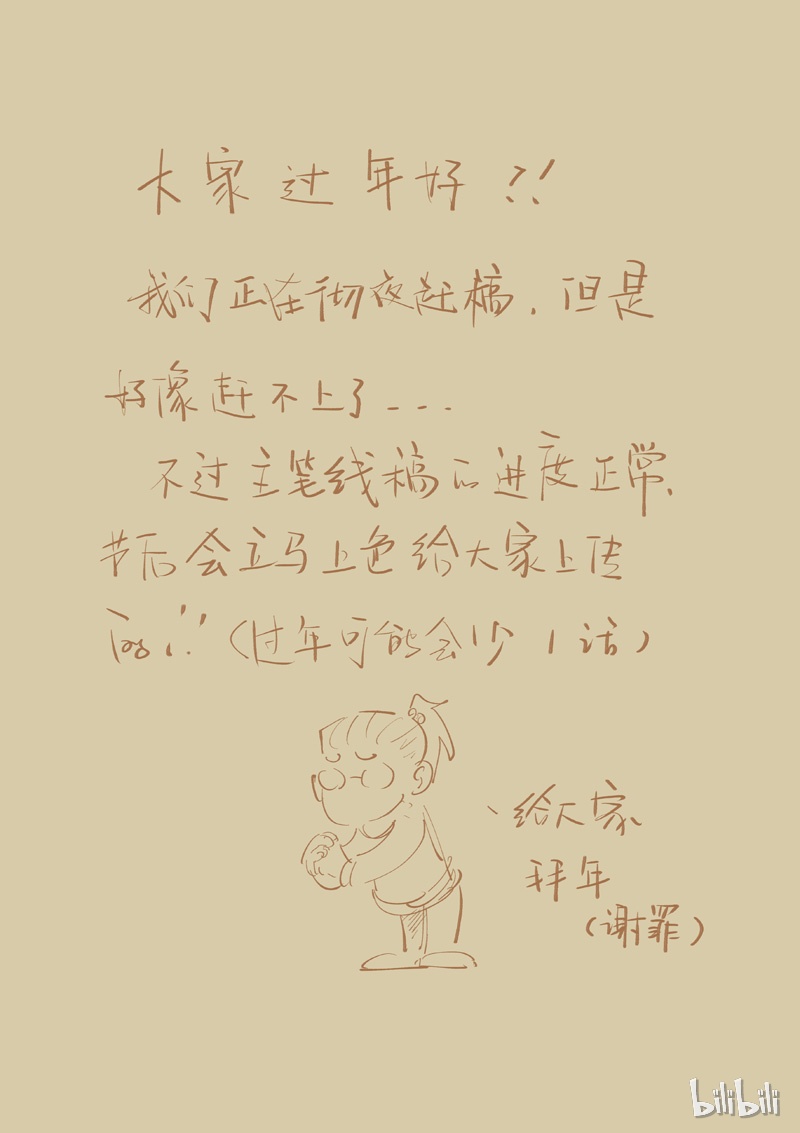 大家过年好!!
我们正在彻夜赶稿,但是
好像赶不上了...
不过主笔线稿的进度正常,
节后会立马上色给大家上传
的!!(过年可能会少1话)
、给大家
拜年
(谢罪)
bilibili